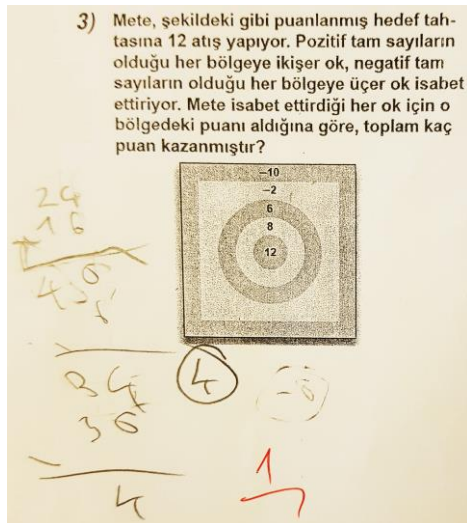 3) Mete, şekildeki gibi puanlanmış hedef tah-
tasına 12 atış yapıyor. Pozitif tam sayıların
olduğu her bölgeye ikişer ok, negatif tam
sayıların olduğu her bölgeye üçer ok isabet
ettiriyor. Mete isabet ettirdiği her ok için o
bölgedeki puanı aldığına göre, toplam kaç
puan kazanmıştır?
–10
–2
6
8
12
24
16
4
36
4
1